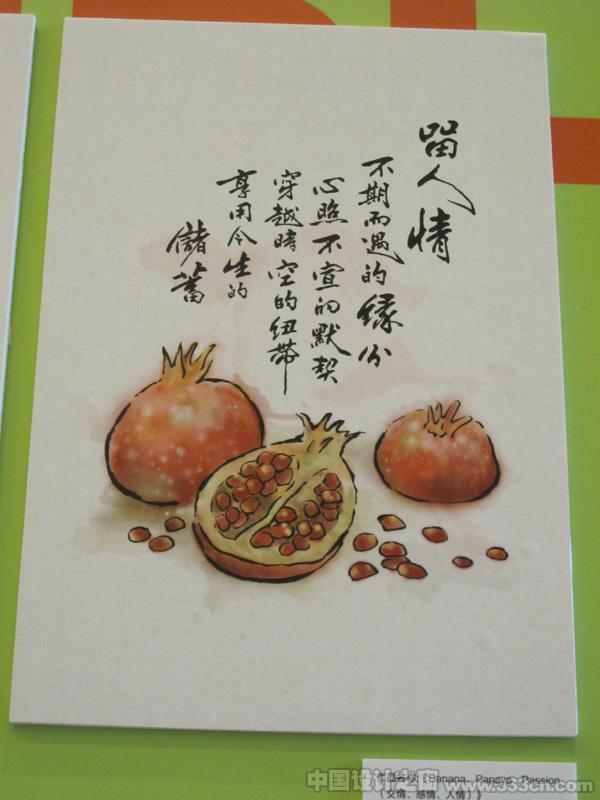 留人情
不期而遇的緣分
心照不宣的默契
穿越時空的紐帶
享用今生的
儲蓄
作品名称:《Banana、Papaya、Passion
（交情、感情、人情）》
中国设计之窗 www.333cn.com